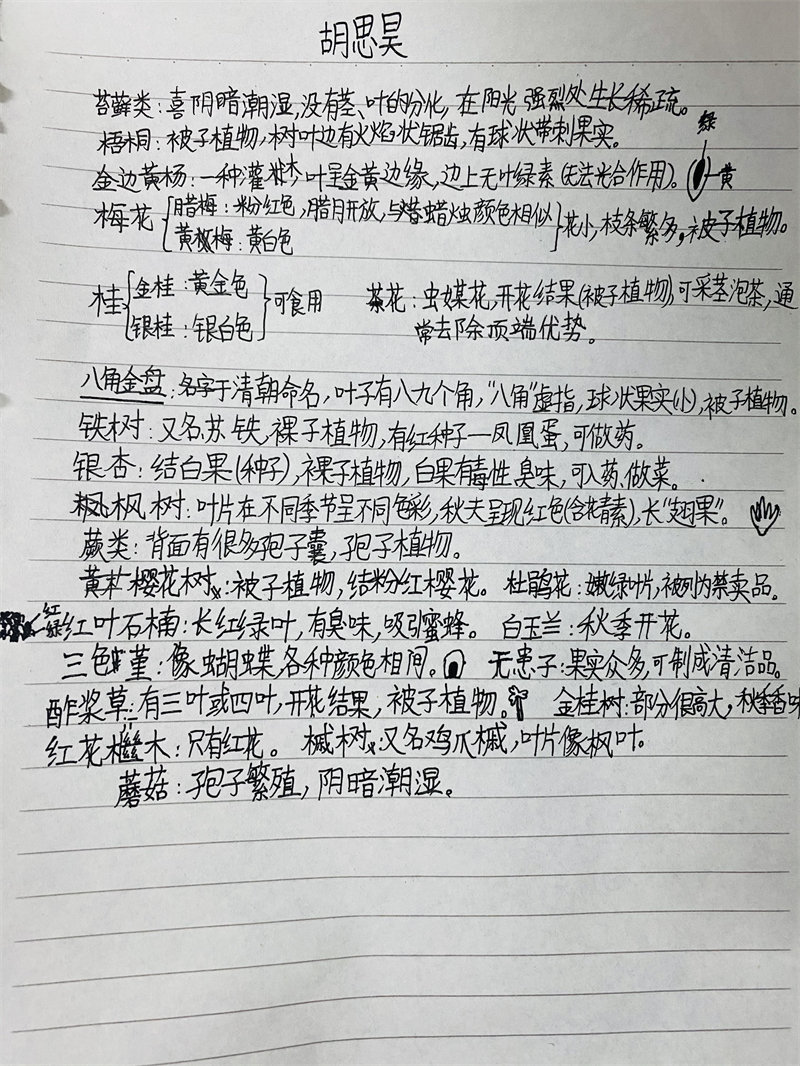 胡思昊
苔藓类：喜阴暗潮湿,没有茎、叶的分化，在阳光强烈处生长稀疏。
梧桐：被子植物,树叶边有火焰状锯齿,有球状带刺果实。
绿
金边黄杨：一种灌木,叶呈金黄边缘,边上无叶绿素(无法光合作用)。
黄
梅花
腊梅：粉红色,腊月开放,与蜡烛颜色相似
黄梅：黄白色
花小,枝条繁多,被子植物。
桂
金桂：黄金色
银桂：银白色
可食用
茶花：虫媒花,开花结果(被子植物),可采茎泡茶,通
常去除顶端优势。
八角金盘：名字于清朝命名，叶子有八九个角,“八角”虚指，球状果实(小),被子植物。
铁树：又名苏铁,裸子植物,有红种子—凤凰蛋,可做药。
银杏：结白果(种子),裸子植物,白果有毒性,臭味,可入药,做菜。
枫树：叶片在不同季节呈不同色彩,秋天呈现红色(含花青素),长“翅果”。
蕨类：背面有很多孢子囊,孢子植物。
樱花树：被子植物,结粉红樱花。 杜鹃花：嫩绿叶片,被列为禁卖品。
红
绿
红叶石楠：长红绿叶,有臭味,吸引蜜蜂。 白玉兰：秋季开花。
三色堇：像蝴蝶,各种颜色相间。 无患子：果实众多,可制成清洁品。
酢浆草：有三叶或四叶,开花结果,被子植物。 金桂树：部分很高大,秋季香味
红花檵木：只有红花。 槭树：又名鸡爪槭,叶片像枫叶。
蘑菇：孢子繁殖,阴暗潮湿。